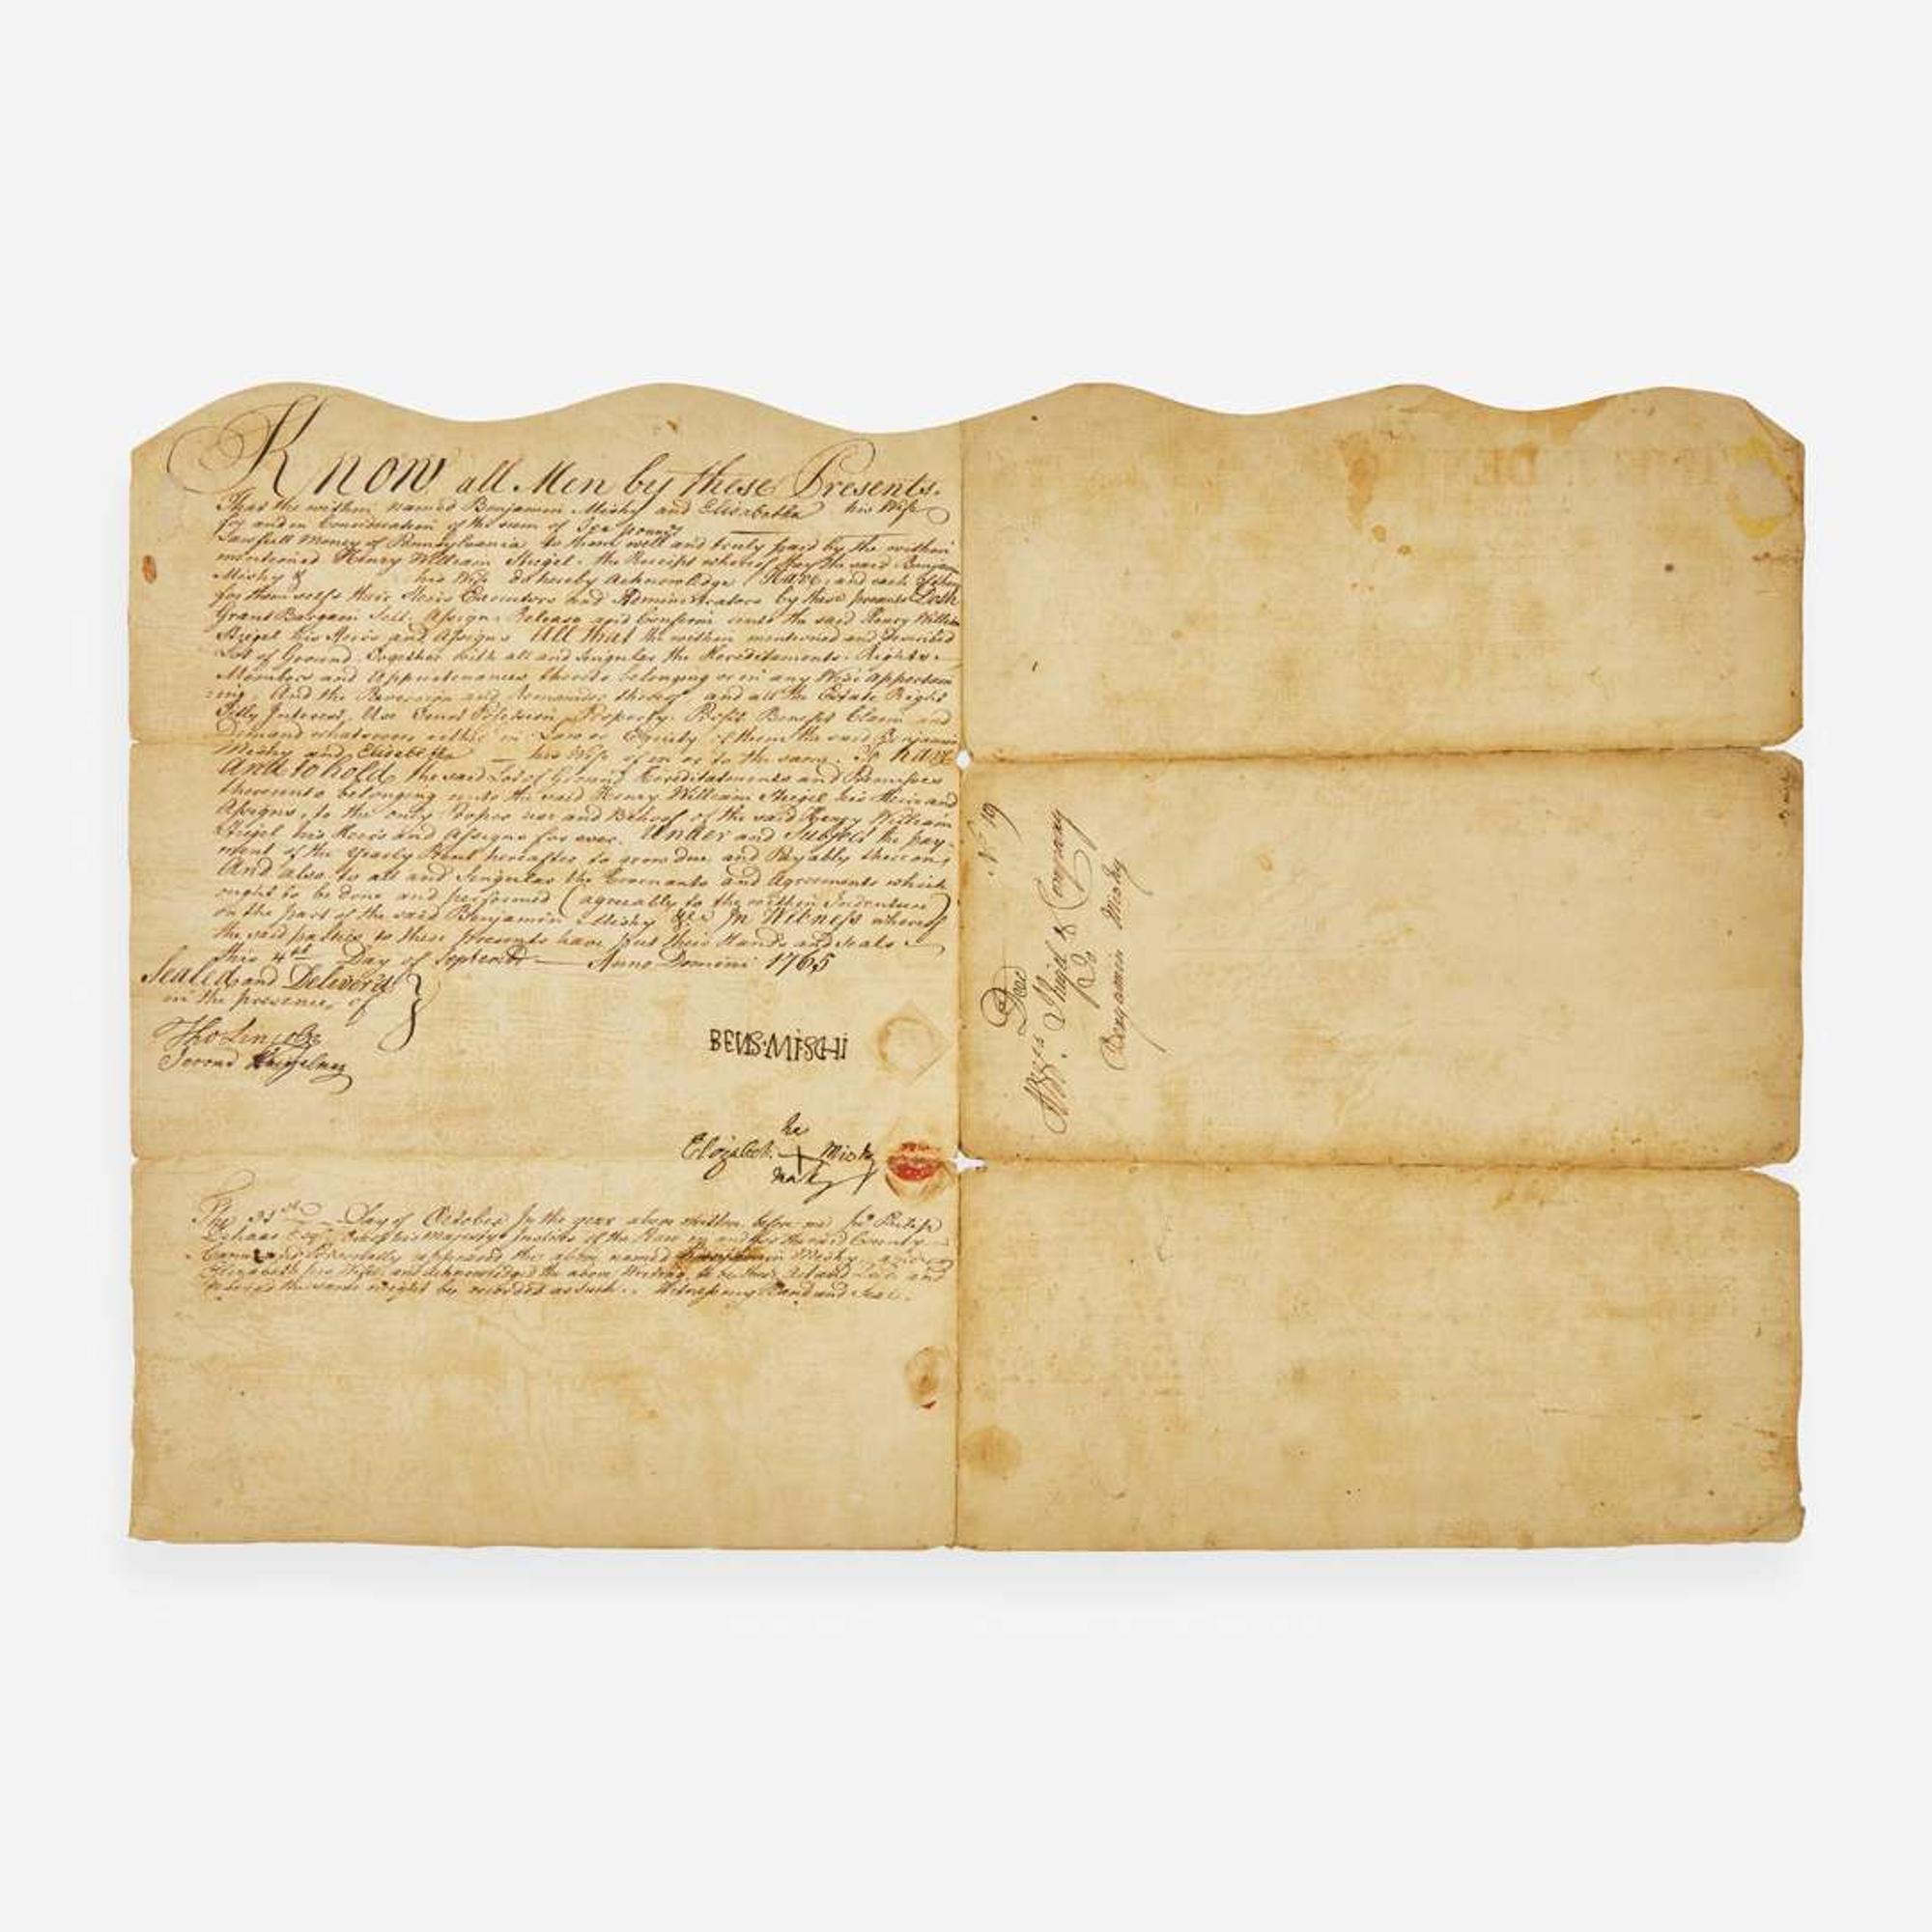 Know all Men by these Presents.
That the within named Benjamin Mishy and Elisabetha his Wife
for and in Consideration of the sum of Ten pounds
Lawfull Money of Pennsylvania to them well and truly paid by the within
mentioned Henry William Stiegel the Receipt whereof they the said Benjamin
Mishy & his Wife do hereby Acknowledge Have and each of them
for themselfs their Heirs Executors and Administrators by these presents Doth
Grant Bargain Sell Assign Release and Confirm unto the said Henry William
Stiegel his Heirs and Assigns All that the within mentioned and Described
Lot of Ground Together with all and Singular the Hereditaments Rights
Members and Appurtenances thereto belonging or in any Wise appertain
ing. And the Reversion and Remainder thereof and all the Estate Right
Interest, Use Property Profit Benefit Claim and
Demand whatsoever either in Law or Equity of them the said Benjamin
Mishy and Elisabetha his Wife of in or to the same. To have
And to hold the said Lot of Ground Hereditatments and Premises
thereunto belonging unto the said Henry William Stiegel his Heirs and
Assigns, to the only Proper use and Behoof of the said Henry William
Stiegel his Heirs and Assigns for ever. Under and Subject the pay-
ment of the Yearly Rent hereafter to grow due and Payably thereon
And also to all and Singular the Covenants and Agreements which
ought to be done and performed (agreably to the within Indenture)
on the part of the said Benjamin Mishy &c In Witness whereof
the said parties to these Presents have put their Hands and Seals
this 4th Day of September Anno Domini 1765
Sealed and Deliver'd
in the presence of
BENS·MISCHI
he
Elizabeth + Mishy
mark
The 31st Day of October In the year above written before me Jno Philip
Dehaas Esqr. One of his Majestys Justices of the Peace in and for the said County
Personally appeared the above named Benjamin Mishy and
Elizabeth his Wife and acknowledged the above Writing to be their Act and Deed and
the same might be recorded as such. Witness my Hand and Seal.
No 19
Deed
Stiegel & Company
Benjamin Mishy